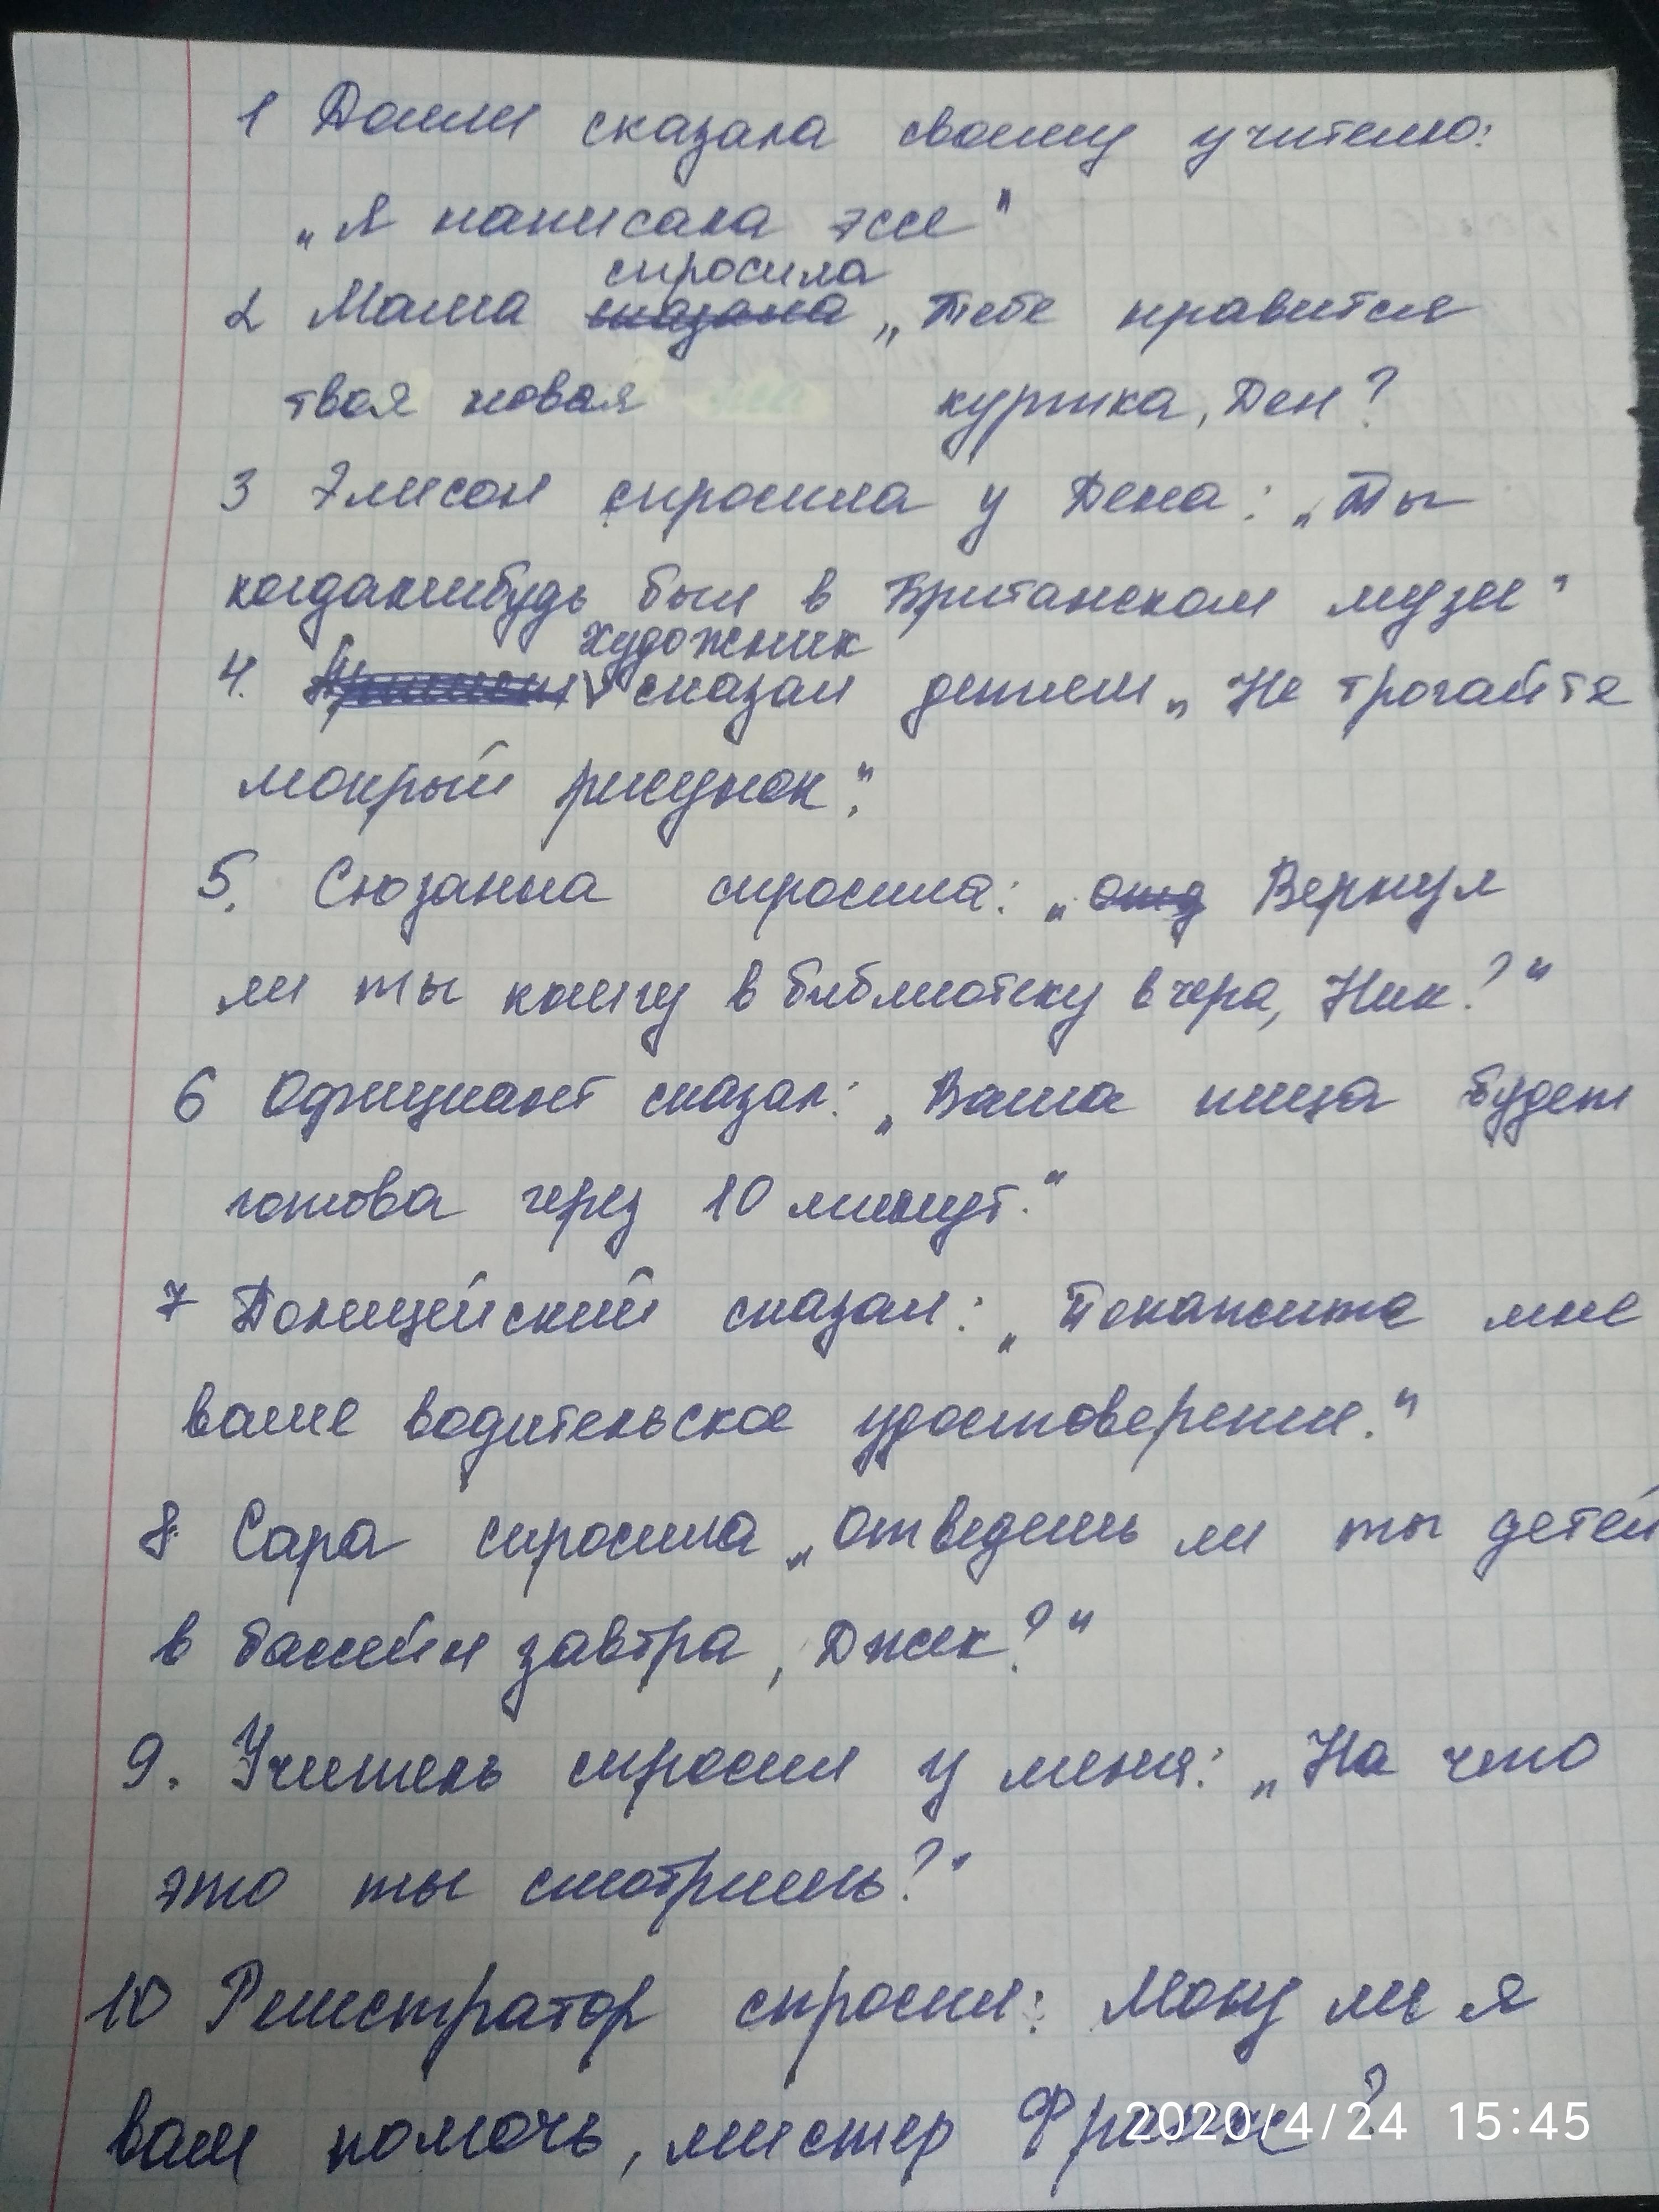 1 Долли сказала своему учителю:
„Я написала эссе"
спросила
2 Мама сказала „Тебе нравится
твоя новая куртка, Ден?
3 Элисон спросила у Дена: „Ты
когданибудь был в Британском музее"
художник
4. сказал детям „Не трогайте
мокрый рисунок".
5. Сюзанна спросила: „отд Вернул
ли ты книгу в библиотеку вчера, Ник?"
6 Официант сказал: „Ваша пища будет
готова через 10 минут."
7 Полицейский сказал: „Покажите мне
ваше водительское удостоверение."
8. Сара спросила „Отведешь ли ты детей
в бассейн завтра, Джек?"
9. Учитель спросил у меня: „На что
это ты смотришь?"
10 Регистратор спросил: Могу ли я
вам помочь, мистер ?
2020/4/24 15:45